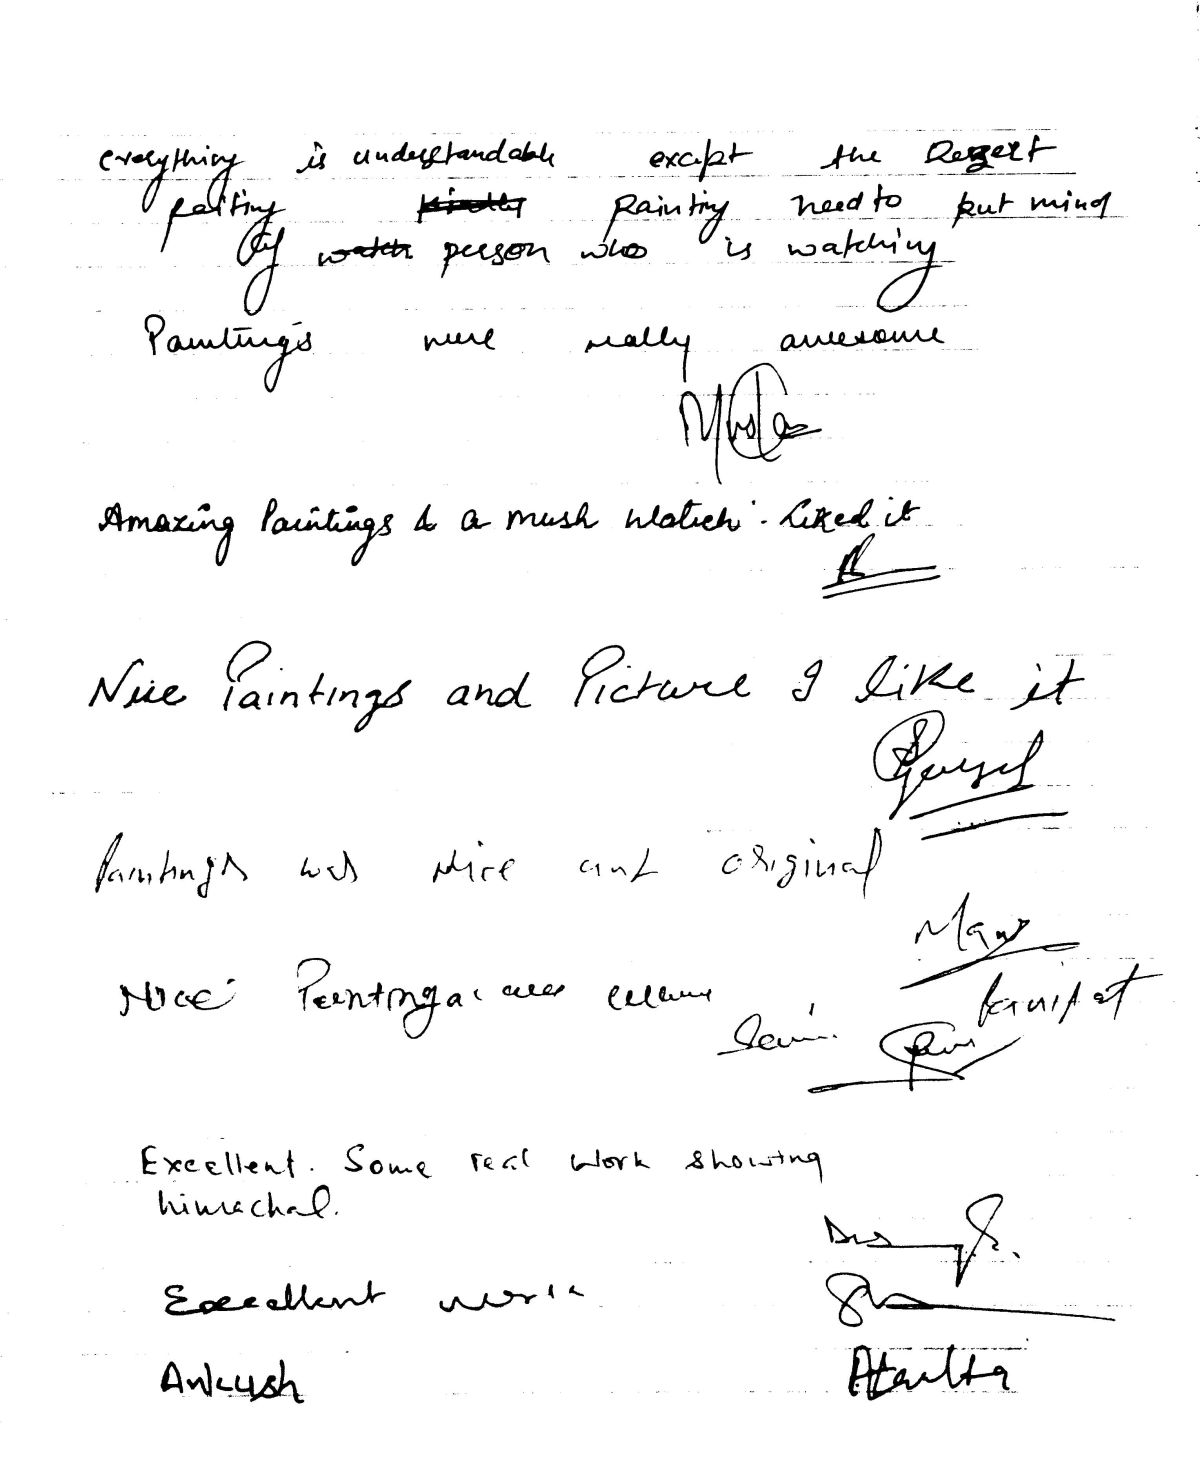 everything is understandable except the Dezert
paiting kindly painting need to put mind
of watch person who is watching
Painting's were really awesome
Amazing Paintings & a mush watch. Liked it
Nice Paintings and Picture I like it
Paintings was Nice and original
Nice
Excellent. Some real work showing
himachal.
Excellent work
Ankush